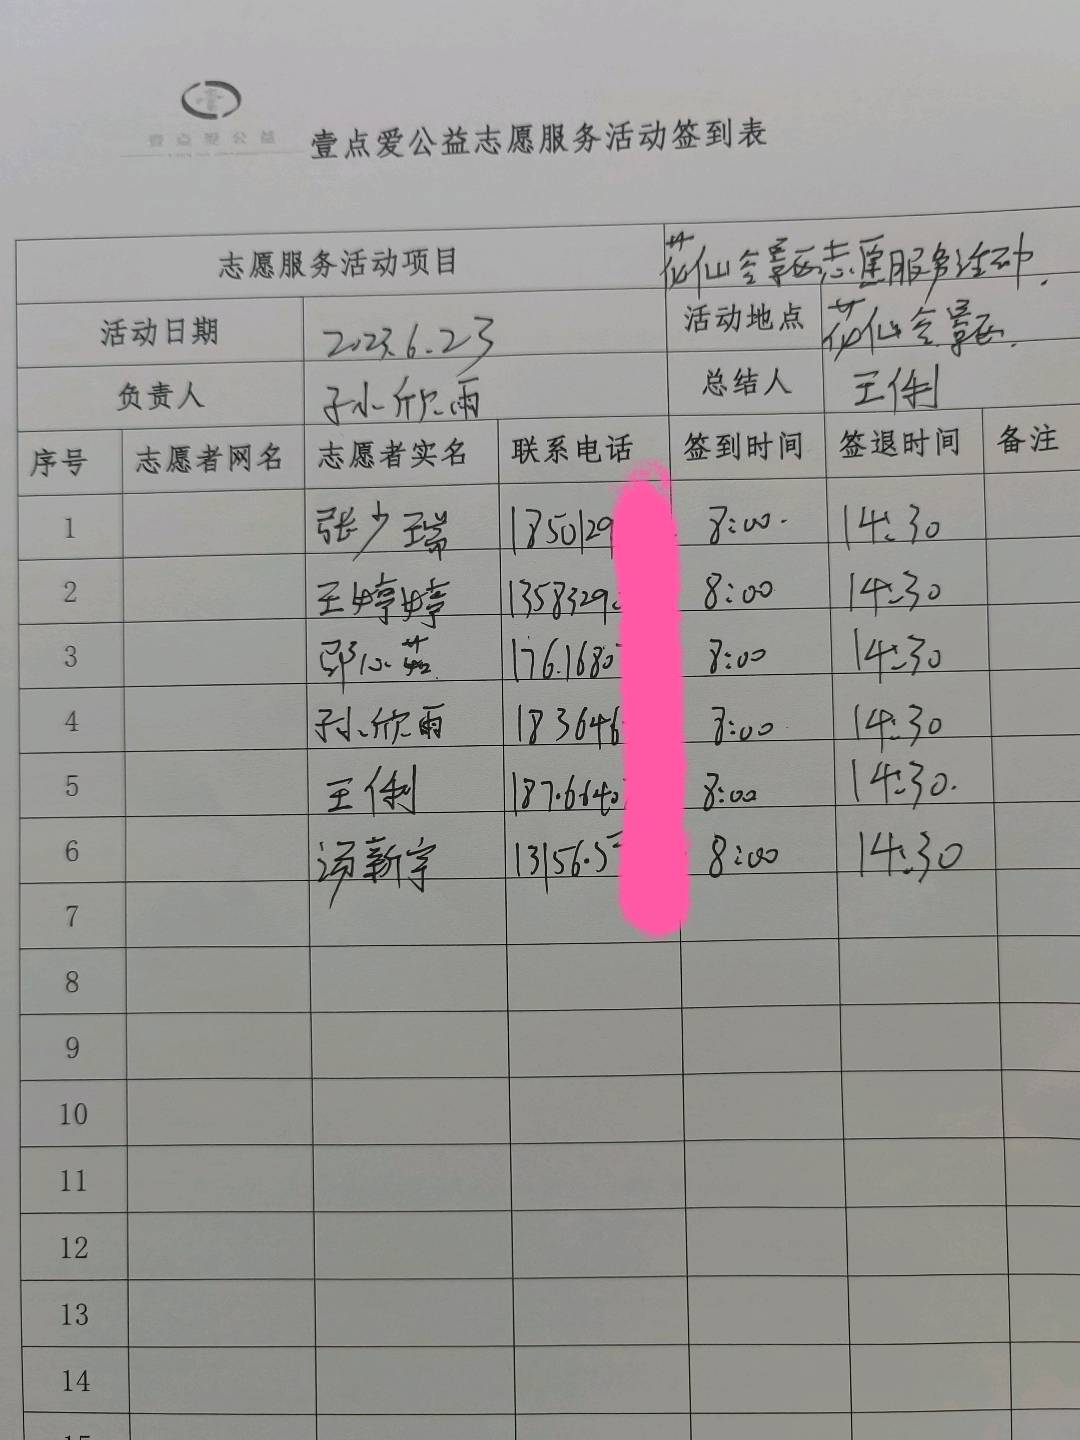 壹点爱公益
壹点爱公益志愿服务活动签到表
志愿服务活动项目 花仙谷景区志愿服务活动.
活动日期 2023.6.23 活动地点 花仙谷景区.
负责人 孙欣雨 总结人 王俐
序号 志愿者网名 志愿者实名 联系电话 签到时间 签退时间 备注
1 张少瑞 1850129 8:00. 14:30
2 王婷婷 1358329 8:00 14:30
3 176.1680 8:00 14:30
4 孙欣雨 183646 8:00 14:30
5 王俐 187.6640 8:00 14:30.
6 汤新宇 13156.5 8:00 14:30
7
8
9
10
11
12
13
14